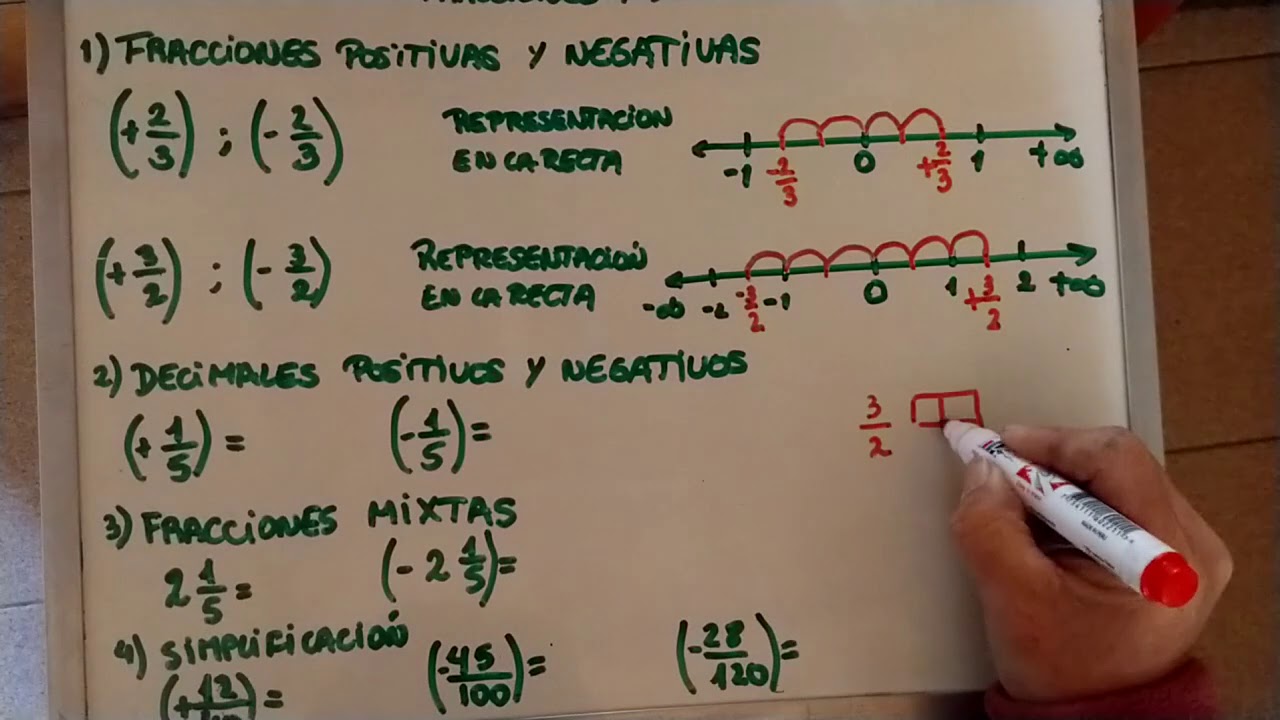 1) FRACCIONES POSITIVAS Y NEGATIVAS
(+2/3) ; (-2/3) REPRESENTACION EN LA RECTA
-1 -2/3 0 +2/3 1 +∞
(+3/2) ; (-3/2) REPRESENTACION EN LA RECTA
-∞ -2 -3/2 -1 0 1 +3/2 2 +∞
2) DECIMALES POSITIVOS Y NEGATIVOS
(+1/5)= (-1/5)=
3/2
3) FRACCIONES MIXTAS
2 1/5= (-2 1/5)=
4) SIMPLIFICACIÓN
(-45/100)= (-28/120)=